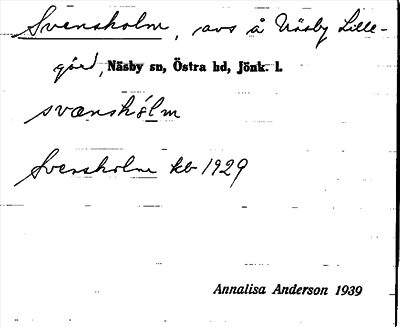 Svensholm, avs å Näsby Lille-
gård, Näsby sn, Östra hd, Jönk. l.
svænshólm
Svensholm kb 1929
Annalisa Anderson 1939